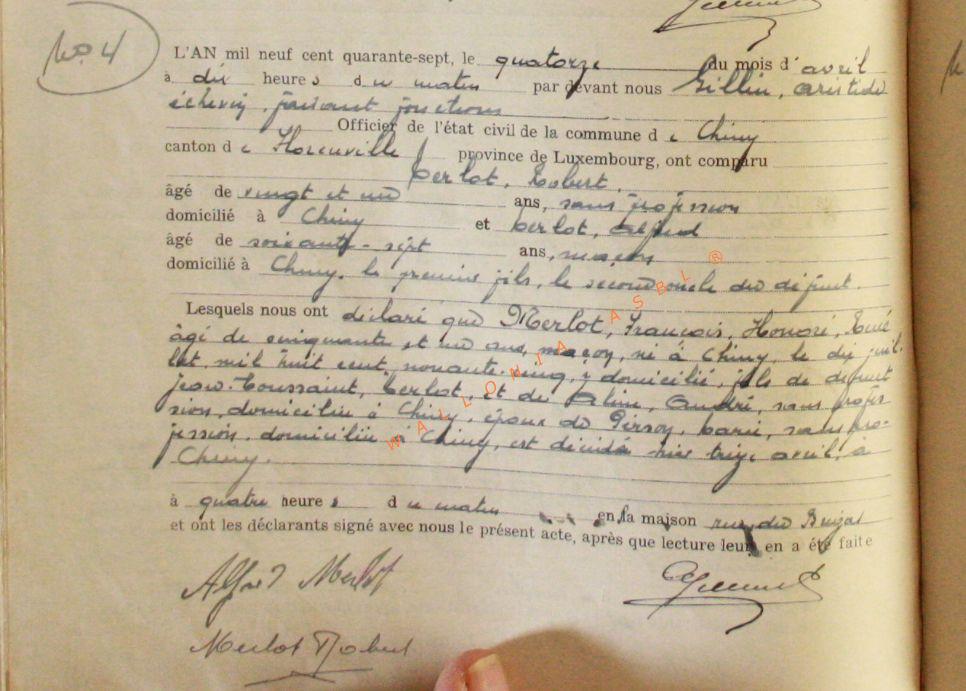 No 4
L'AN mil neuf cent quarante-sept, le quatorze du mois d'avril
à dix heures du matin par devant nous Gillin, Aristide
échevin, faisant fonctions
Officier de l'état civil de la commune de Chiny
canton de Florenville, province de Luxembourg, ont comparu
Merlot, Robert,
âgé de vingt et un ans, sans profession
domicilié à Chiny et Merlot, Alfred
âgé de soixante-sept ans, maçon
domicilié à Chiny, le premier fils, le second oncle du défunt.
Lesquels nous ont déclaré que Merlot, François, Honoré, René
âgé de cinquante et un ans, maçon, né à Chiny, le dix juil-
let mil huit cent nonante-cinq, y domicilié, fils de défunt
Jean-Toussaint, Merlot, et de sans profes-
sion, domiciliée à Chiny, époux de Marie, sans pro-
fession, domiciliée à Chiny, est décédé hier treize avril, à
Chiny.
à quatre heures du matin en sa maison rue du
et ont les déclarants signé avec nous le présent acte, après que lecture leur en a été faite
Alfred Merlot
Merlot Robert
WALLONIA ASBL ®